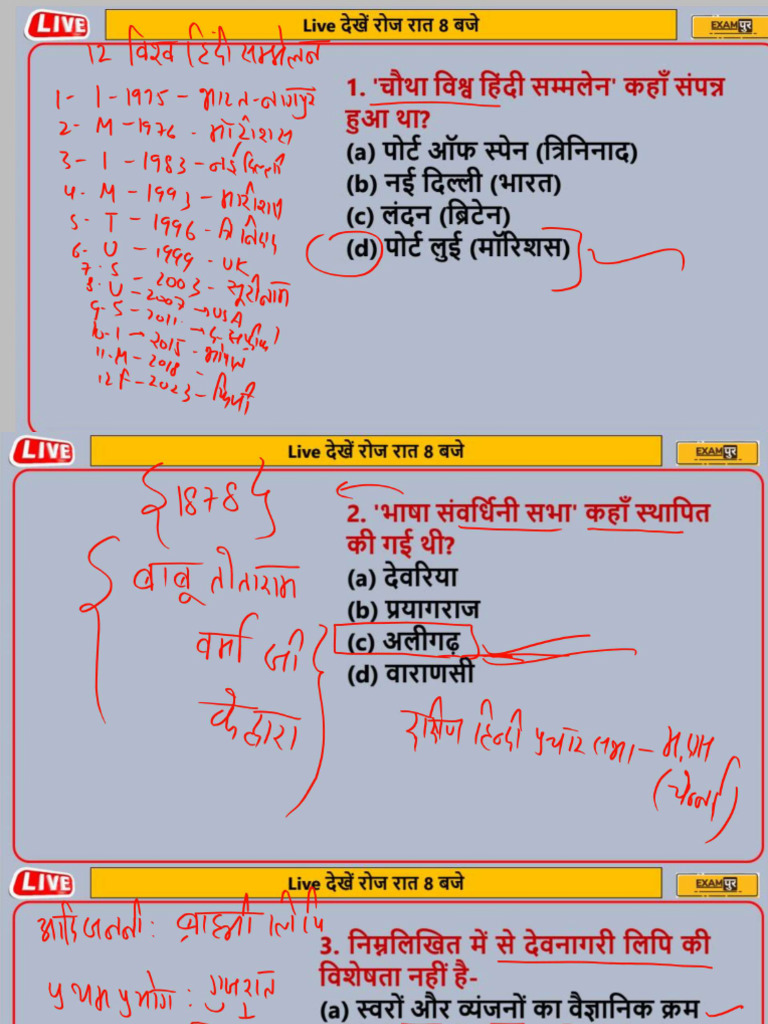 LIVE
Live देखें रोज रात 8 बजे
EXAMपुर
12 विश्व हिंदी सम्मेलन
1- I - 1975 - भारत-नागपुर
2- M - 1976 - मॉरीशस
3- I - 1983 - नई दिल्ली
4- M - 1993 - मारीशस
5- T - 1996 - त्रिनिदाद
6- U - 1999 - UK
7- S - 2003 - सूरीनाम
8- U - 2007 → USA
9- S - 2011 →
10- I → 2015 -
11- M - 2018 -
12 F - 2023 - फिजी
1. 'चौथा विश्व हिंदी सम्मलेन' कहाँ संपन्न
हुआ था?
(a) पोर्ट ऑफ स्पेन (त्रिनिनाद)
(b) नई दिल्ली (भारत)
(c) लंदन (ब्रिटेन)
(d) पोर्ट लुई (मॉरिशस)
LIVE
Live देखें रोज रात 8 बजे
EXAMपुर
{1878}
बाबू तोताराम
वर्मा जी
के द्वारा
2. 'भाषा संवर्धिनी सभा' कहाँ स्थापित
की गई थी?
(a) देवरिया
(b) प्रयागराज
(c) अलीगढ़
(d) वाराणसी
दक्षिण हिन्दी प्रचार सभा -
(चेन्नई)
LIVE
Live देखें रोज रात 8 बजे
EXAMपुर
आदि जननी: ब्राह्मी लिपि
प्रथम प्रयोग: गुजरात
3. निम्नलिखित में से देवनागरी लिपि की
विशेषता नहीं है-
(a) स्वरों और व्यंजनों का वैज्ञानिक क्रम